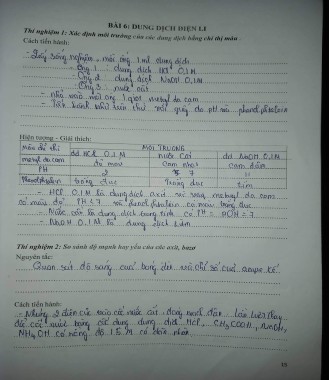 BÀI 6: DUNG DỊCH ĐIỆN LI
Thí nghiệm 1: Xác định môi trường của các dung dịch bằng chỉ thị màu
Cách tiến hành:
- Lấy 3 ống nghiệm, mỗi ống 1 ml dung dịch
- Ống 1 dung dịch HCl 0,1M
- Ống 2 dung dịch NaOH 0,1M
- Ống 3 : nước cất
- nhỏ vào mỗi ống 1 giọt metyl da cam
- Tiến hành như trên với giấy đo pH và phenolphtalein
Hiện tượng - Giải thích:
Màu chỉ thị MÔI TRƯỜNG
dd HCl 0,1M Nước cất dd NaOH 0,1M
metyl da cam đỏ
PH 2 7
Phenolphtalein trong suốt Trong suốt tím
- HCl 0,1M là dung dịch axit metyl da cam
có màu đỏ PH < 7 phenolphtalein có màu trong suốt
- Nước cất là dung dịch trung tính có PH = POH = 7
- NaOH 0,1M là dung dịch
Thí nghiệm 2: So sánh độ mạnh hay yếu của các axit, bazơ
Nguyên tắc:
Quan sát độ sáng của bóng đèn và chỉ số của ampe kế
Cách tiến hành:
- Nhúng 2 điện cực vào cốc nước cất, đóng mạch điện. Lần lượt thay
cốc nước bằng các dung dịch HCl, CH3COOH, NaOH,
NH4OH có nồng độ